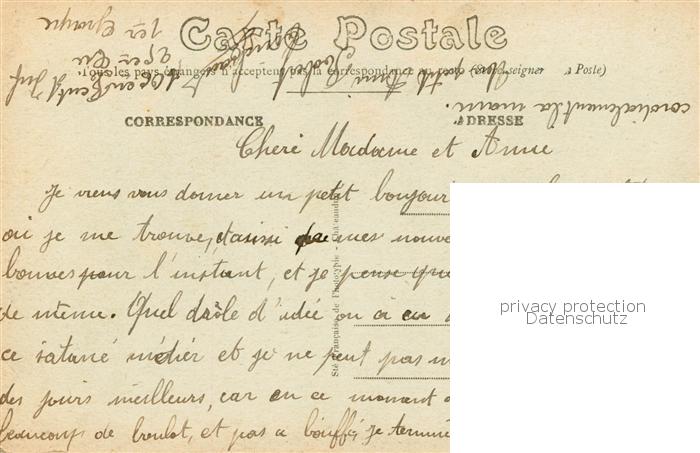 Carte Postale
Tous les pays étrangers n'acceptent pas la correspondance au recto (Se renseigner à la Poste)
CORRESPONDANCE
ADRESSE
Cheré Madame et Amie
Je viens vous donner un petit bonjour
où je me trouve, mes nouv
bonnes pour l'instant, et je pense que
de même. Quel drôle d'idée on a eu
ce satané métier et je ne peut pas
des jours meilleurs, car en ce moment
beaucoup de boulot, et pas a bouffé, je termine
cordialement la main.
Un petit Ami
1er Groupe
Sté Française de Phototypie - Châteaudun
privacy protection
Datenschutz